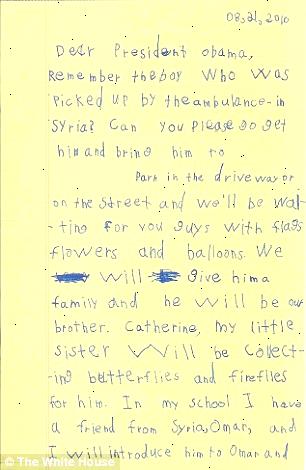 08,21,2016
Dear President obama,
Remember the boy who was
Picked up by the ambulance in
Syria? Can you please go get
him and bring him to
Park in the driveway or
on the street and we'll be wai-
ting for you guys with flags
flowers and balloons. We
will give him a
family and he will be our
brother. Catherine, my little
sister will be collect-
ing butterflies and fireflies
for him. In my school I have
a friend from Syria, Omar, and
I will introduce him to Omar and
© The White House